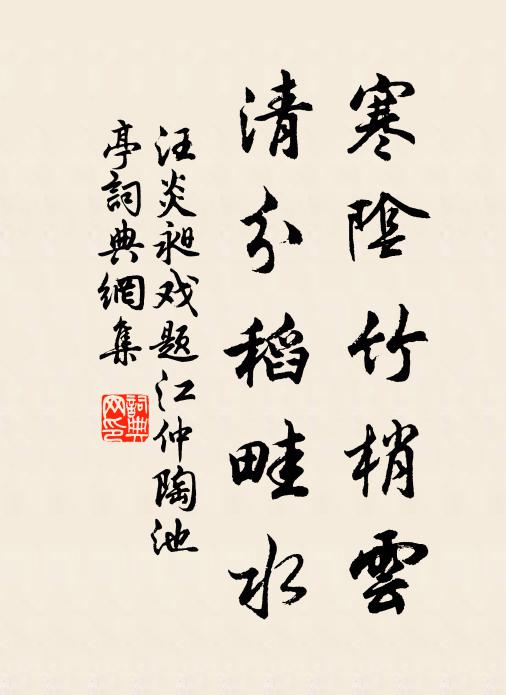 寒陰竹梢雲
清分稻畦水
汪炎昶戏题江仲陶池
亭詞典網集
詞典
网印